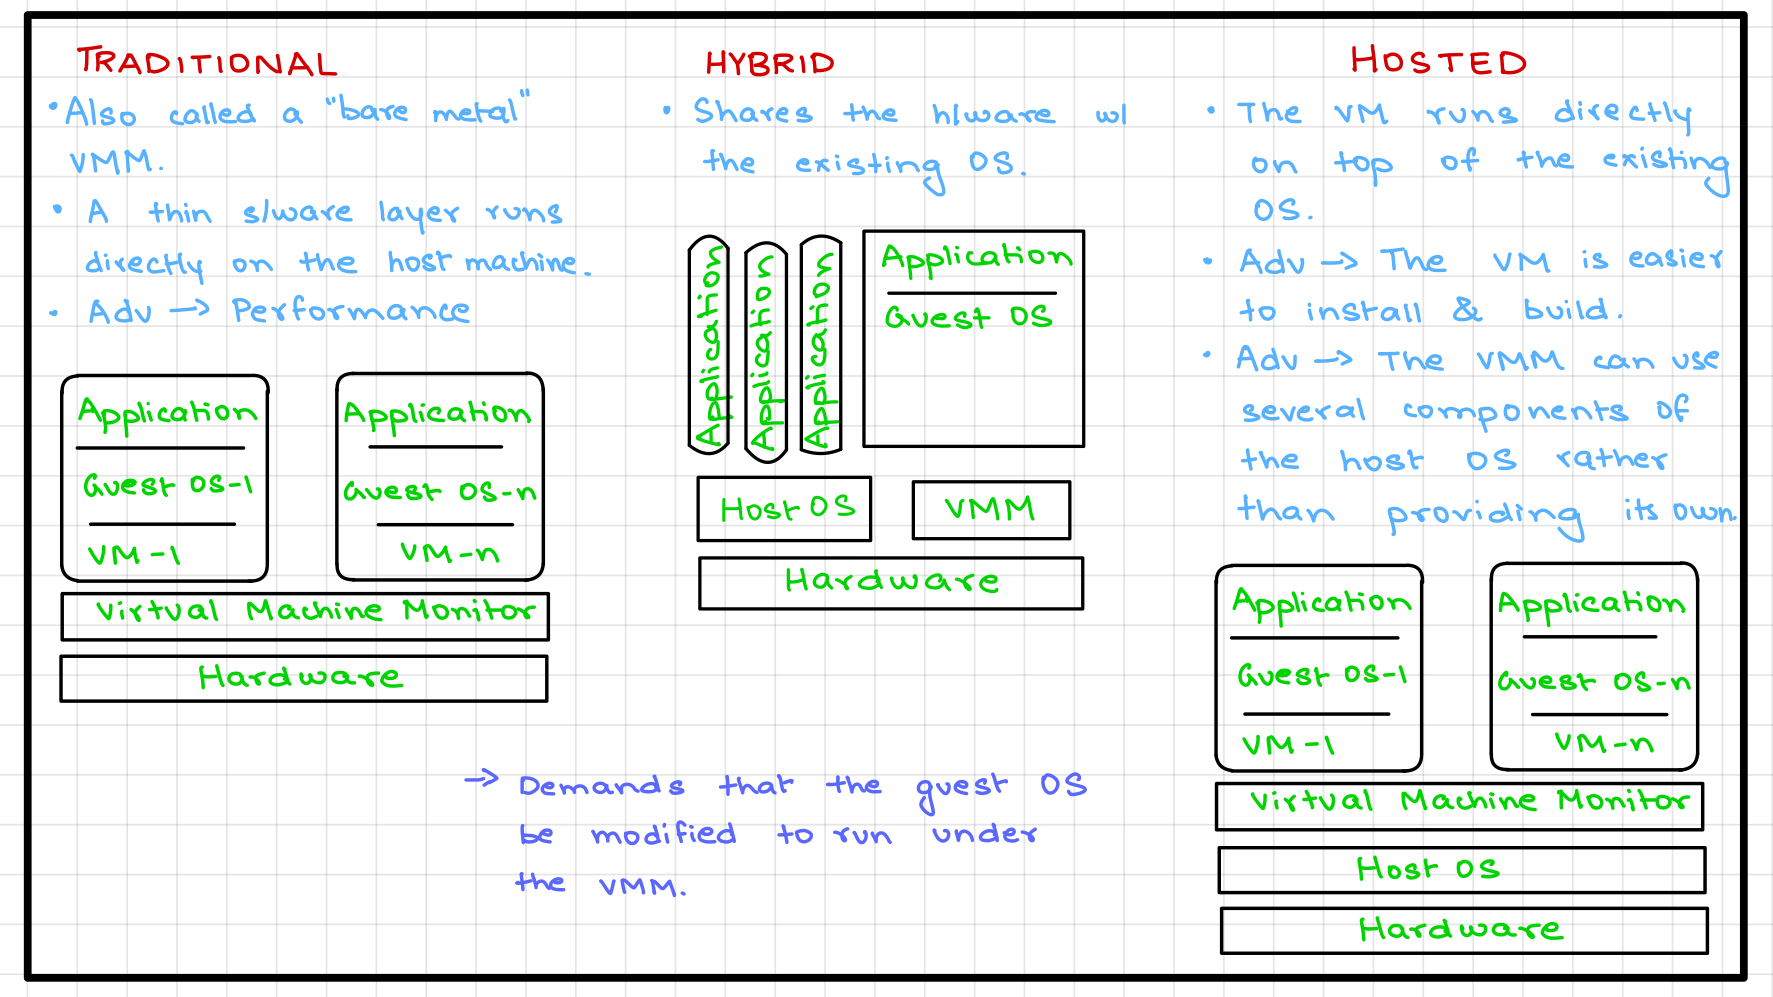 TRADITIONAL
• Also called a "bare metal"
VMM.
• A thin s/ware layer runs
directly on the host machine.
• Adv → Performance
Application
Guest OS-1
VM-1
Application
Guest OS-n
VM-n
Virtual Machine Monitor
Hardware
HYBRID
• Shares the h/ware w/
the existing OS.
Application
Application
Application
Application
Guest OS
Host OS
VMM
Hardware
→ Demands that the guest OS
be modified to run under
the VMM.
HOSTED
• The VM runs directly
on top of the existing
OS.
• Adv → The VM is easier
to install & build.
• Adv → The VMM can use
several components of
the host OS rather
than providing its own.
Application
Guest OS-1
VM-1
Application
Guest OS-n
VM-n
Virtual Machine Monitor
Host OS
Hardware